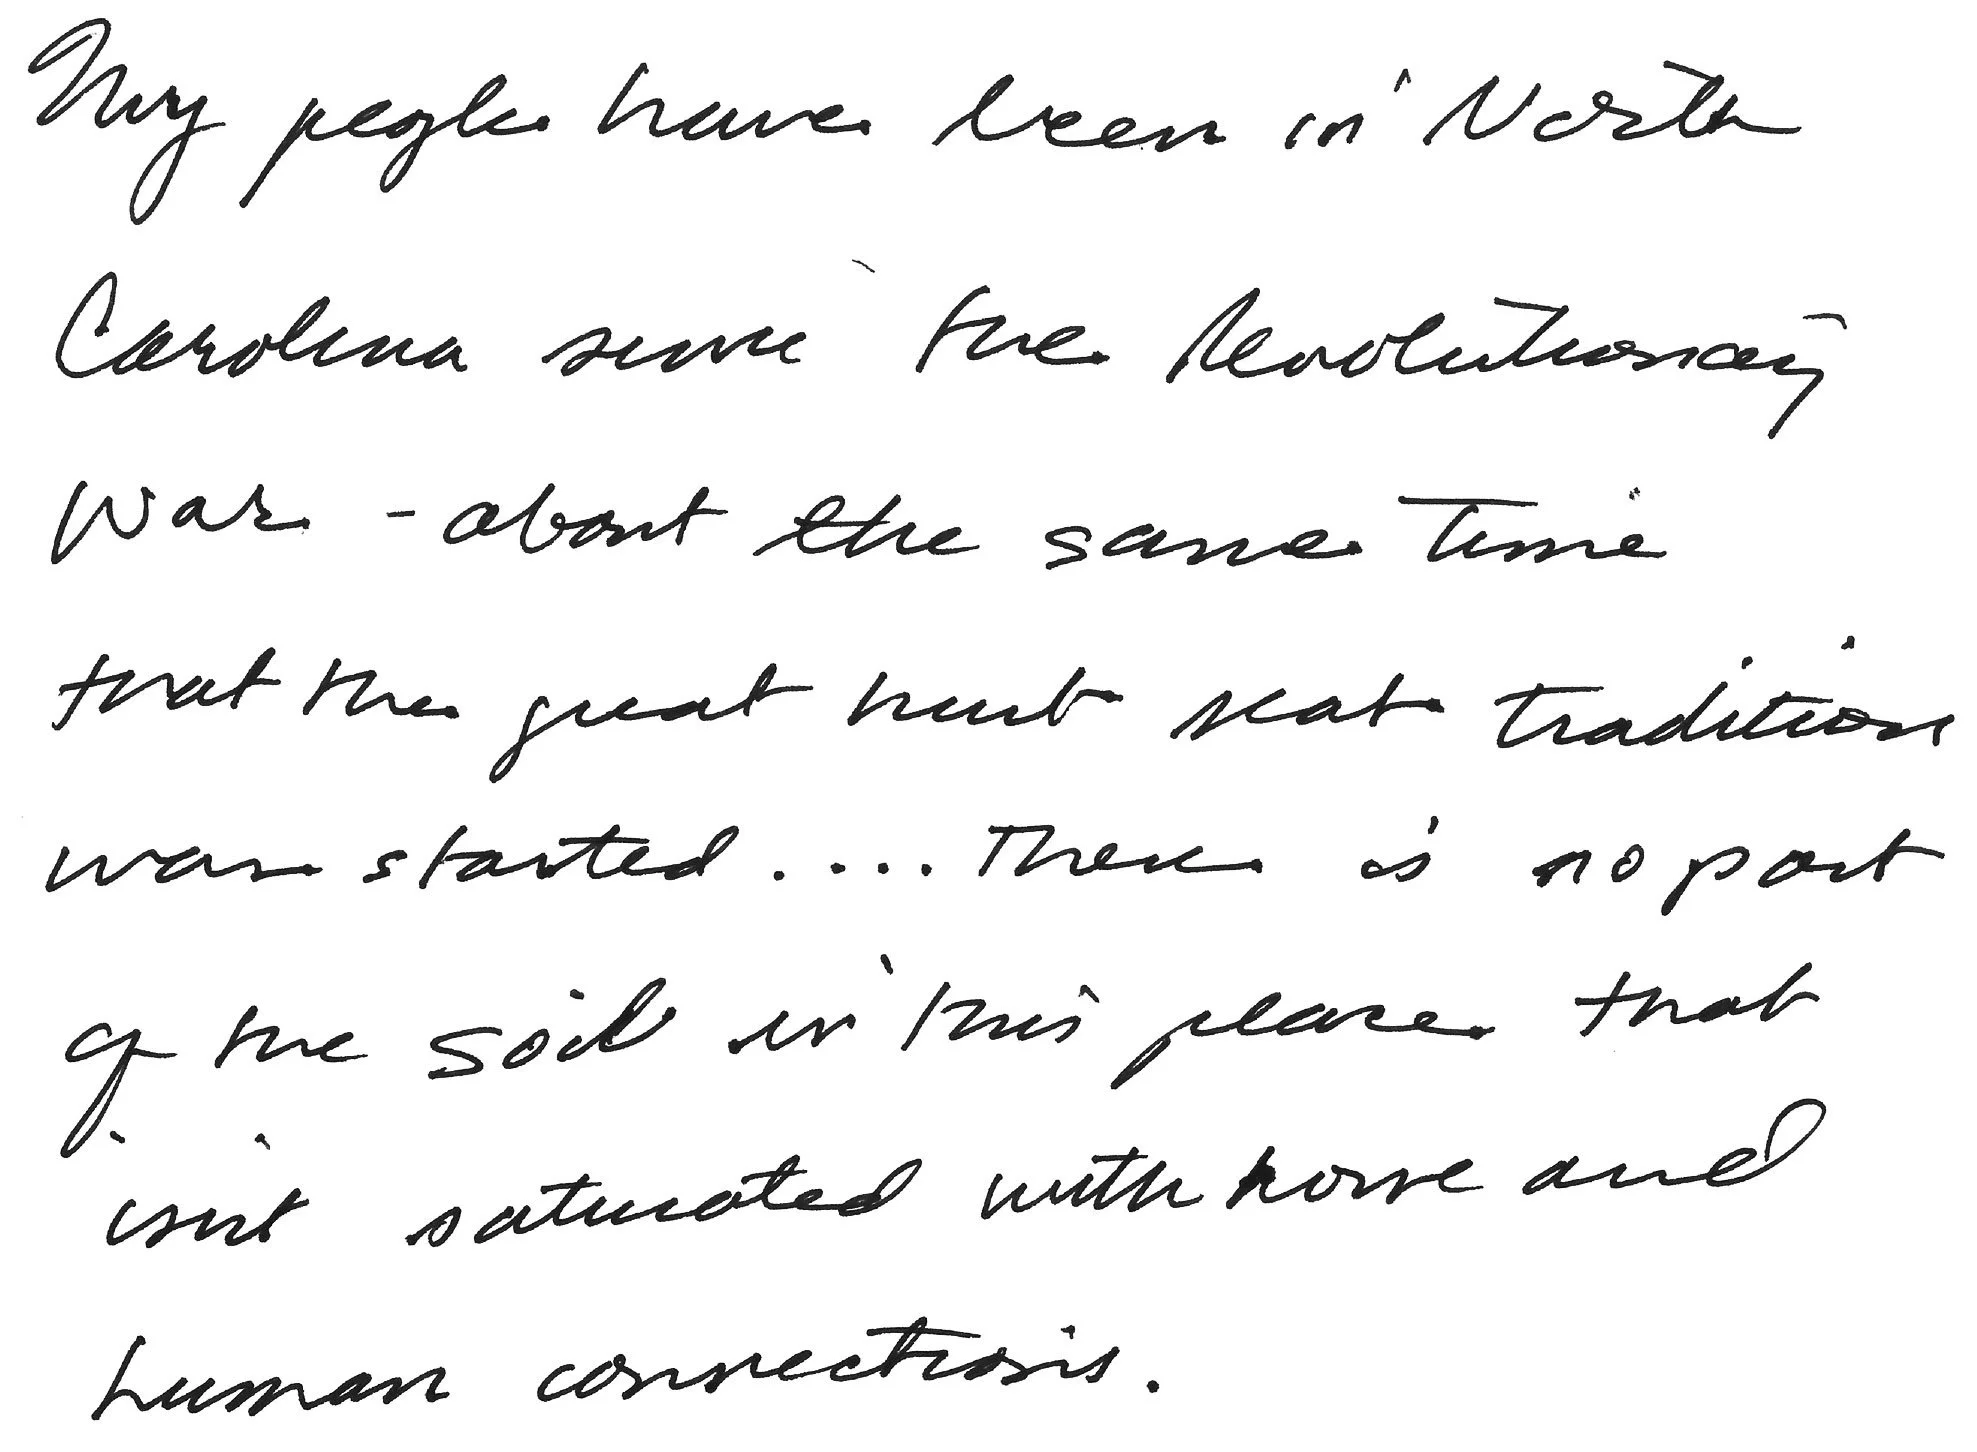 My people have been in North
Carolina since the Revolutionary
War - about the same time
that the great hunt seat tradition
was started .... There is no part
of the soil in this place that
isn't saturated with horse and
human connections.